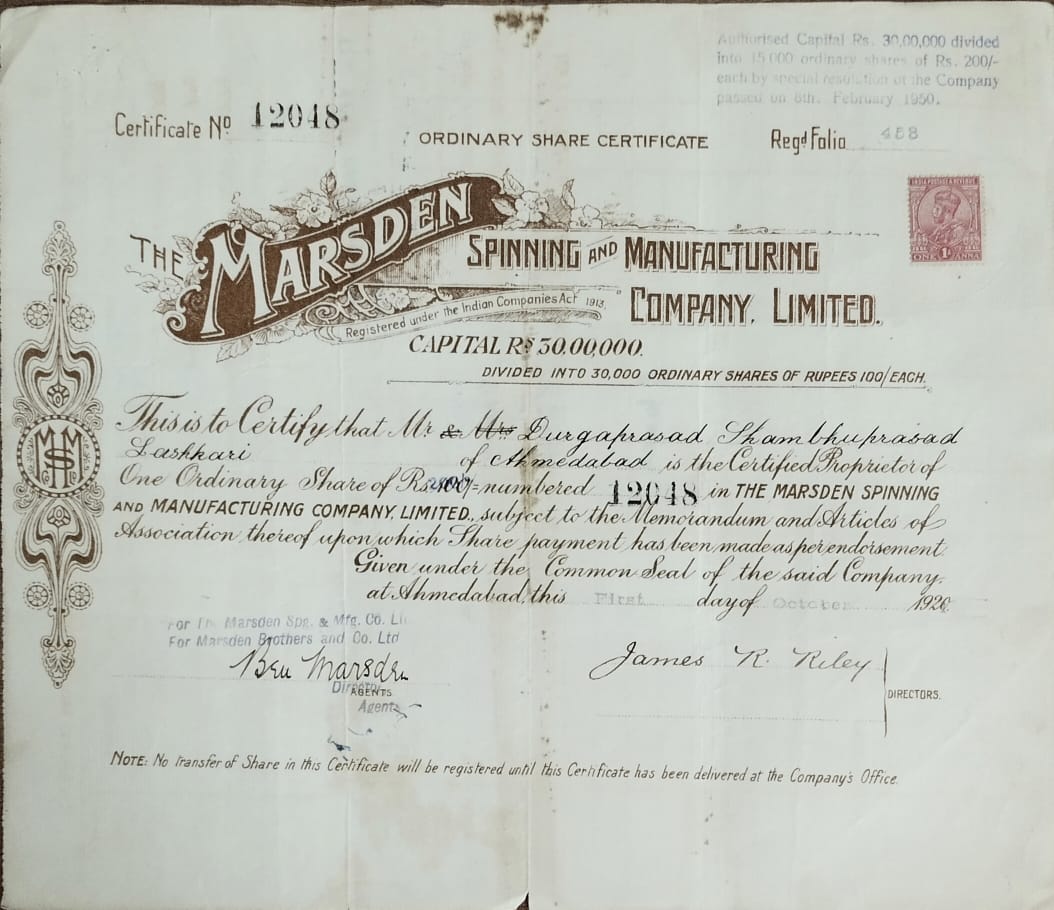 Authorised Capital Rs. 30,00,000 divided
into 15000 ordinary shares of Rs. 200/-
each by special resolution of the Company
passed on 8th. February 1950.
Certificate No 12048
ORDINARY SHARE CERTIFICATE
Regd Folio 458
INDIA POSTAGE & REVENUE
ONE 1A ANNA
THE MARSDEN
SPINNING AND MANUFACTURING
COMPANY, LIMITED.
Registered under the Indian Companies Act 1913.
CAPITAL RS 30,00,000.
DIVIDED INTO 30,000 ORDINARY SHARES OF RUPEES 100/EACH.
This is to Certify that Mr & Mrs Durgaprasad Shambhuprasad
Laskhari of Ahmedabad is the Certified Proprietor of
One Ordinary Share of Rs. numbered 12048 in THE MARSDEN SPINNING
AND MANUFACTURING COMPANY, LIMITED., subject to the Memorandum and Articles of
Association thereof upon which Share payment has been made as per endorsement
Given under the Common Seal of the said Company.
at Ahmedabad, this First day of October 1926
For The Marsden Spg. & Mfg. Co.
For Marsden Brothers and Co. Ltd
Ben Marsden
Director
AGENTS
Agents
James R. Riley
DIRECTORS.
NOTE: No transfer of Share in this Certificate will be registered until this Certificate has been delivered at the Company's Office.